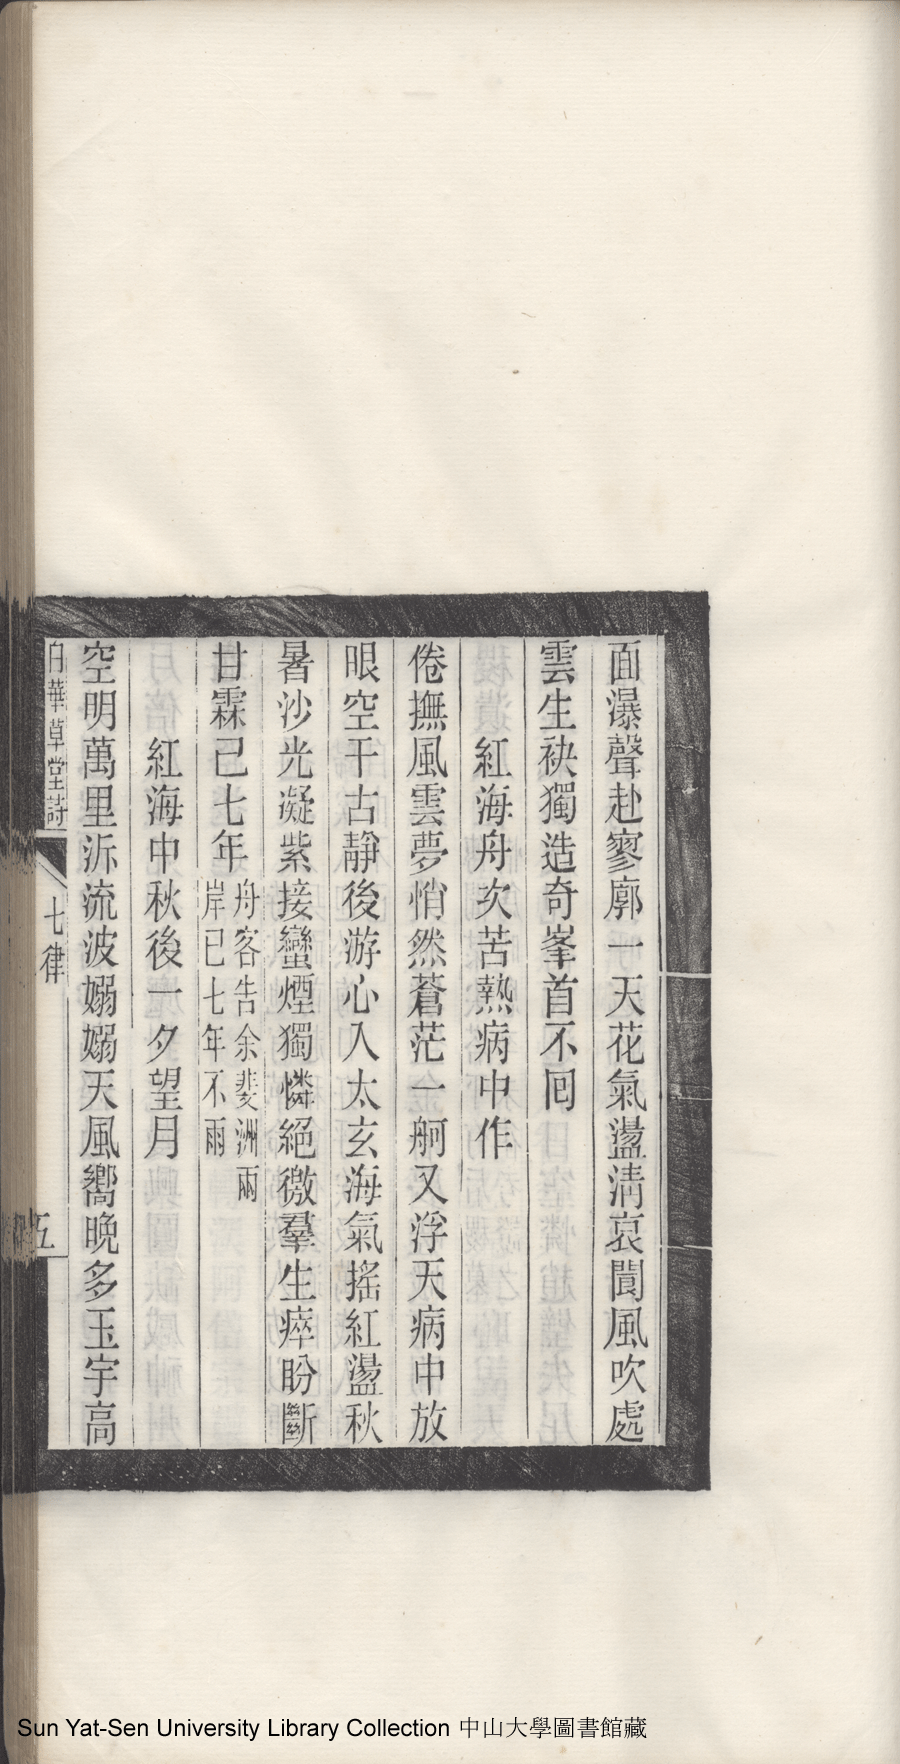 面瀑聲赴寥廓一天花氣盪淸哀閬風吹處
雲生袂獨造奇峯首不囘
紅海舟次苦熱病中作
倦撫風雲夢悄然蒼茫一舸又浮天病中放
眼空千古靜後游心入太玄海氣搖紅盪秋
暑沙光凝紫接蠻煙獨憐絕徼羣生瘁盼斷
甘霖已七年舟客告余斐洲兩
岸已七年不雨
紅海中秋後一夕望月
空明萬里泝流波嫋嫋天風嚮晚多玉宇高
白華草堂詩
七律
五
Sun Yat-Sen University Library Collection 中山大學圖書館藏